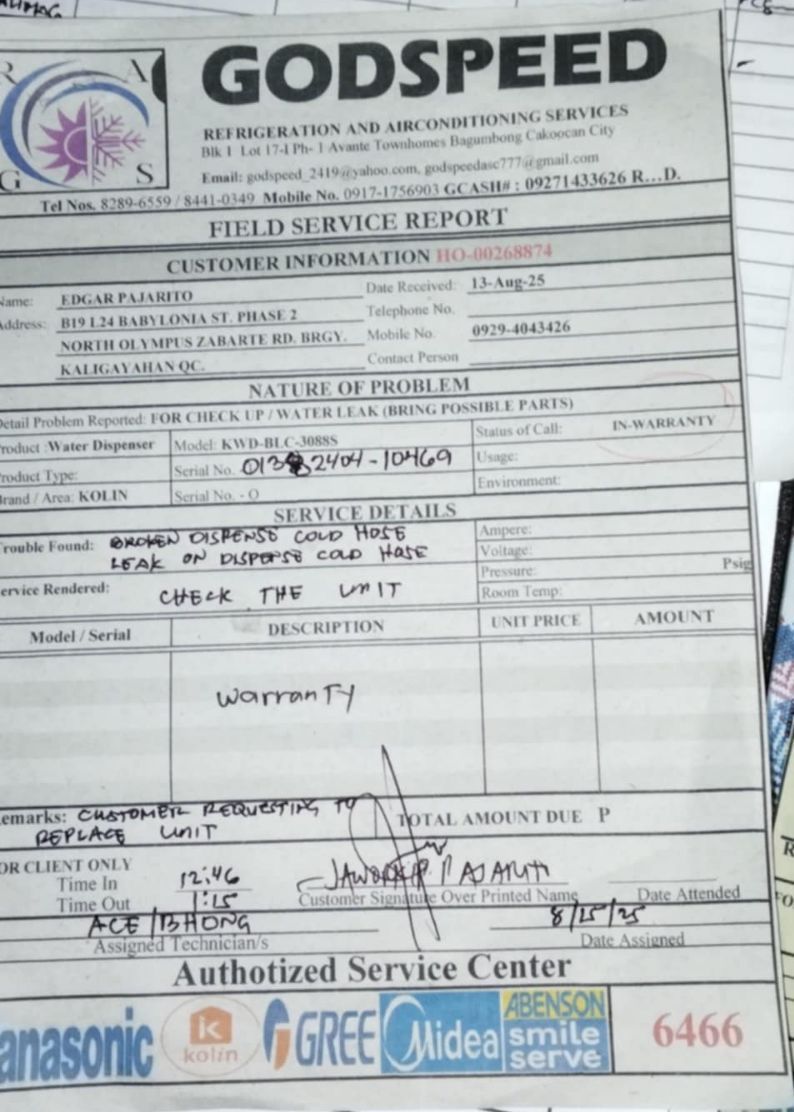 R A
G S
GODSPEED
REFRIGERATION AND AIRCONDITIONING SERVICES
Blk 1 Lot 17-I Ph- 1 Avante Townhomes Bagumbong Cakoocan City
Email: godspeed_2419@yahoo.com, godspeedasc777@gmail.com
Tel Nos. 8289-6559 / 8441-0349 Mobile No. 0917-1756903 GCASH# : 09271433626 R...D.
FIELD SERVICE REPORT
CUSTOMER INFORMATION HO-00268874
Name: EDGAR PAJARITO Date Received: 13-Aug-25
Address: B19 L24 BABYLONIA ST. PHASE 2 Telephone No.
NORTH OLYMPUS ZABARTE RD. BRGY. Mobile No. 0929-4043426
KALIGAYAHAN QC. Contact Person
NATURE OF PROBLEM
Detail Problem Reported: FOR CHECK UP / WATER LEAK (BRING POSSIBLE PARTS)
Product :Water Dispenser Model: KWD-BLC-3088S Status of Call: IN-WARRANTY
Product Type: Serial No. 01382404-10469 Usage:
Brand / Area: KOLIN Serial No. - O Environment:
SERVICE DETAILS
Trouble Found: BROKEN DISPENSE COLD HOSE Ampere:
LEAK ON DISPENSE COLD HOSE Voltage:
Pressure: Psig
Service Rendered: CHECK THE UNIT Room Temp:
Model / Serial DESCRIPTION UNIT PRICE AMOUNT
warranTy
Remarks: CUSTOMER REQUESTING TO
REPLACE UNIT
TOTAL AMOUNT DUE P
FOR CLIENT ONLY
Time In 12:46
Time Out 1:15
Customer Signature Over Printed Name Date Attended
ACE / BHONG 8/15/25
Assigned Technician/s Date Assigned
Authotized Service Center
Panasonic kolin GREE Midea ABENSON smile serve 6466